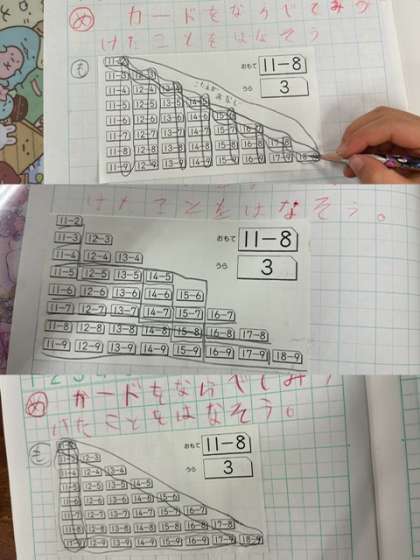 め カードをならべてみつ
けたことをはなそう
も
11-2
11-3 12-3
11-4 12-4 13-4
11-5 12-5 13-5 14-5
11-6 12-6 13-6 14-6 15-6
11-7 12-7 13-7 14-7 15-7 16-7
11-8 12-8 13-8 14-8 15-8 16-8 17-8
11-9 12-9 13-9 14-9 15-9 16-9 17-9 18-9
おもて 11-8
うら 3
けたことをはなそう。
11-2
11-3 12-3
11-4 12-4 13-4
11-5 12-5 13-5 14-5
11-6 12-6 13-6 14-6 15-6
11-7 12-7 13-7 14-7 15-7 16-7
11-8 12-8 13-8 14-8 15-8 16-8 17-8
11-9 12-9 13-9 14-9 15-9 16-9 17-9 18-9
おもて 11-8
うら 3
め カードをならべてみ
けたことをはなそう。
も
12-3
12-4 13-4
12-5 13-5 14-5
12-6 13-6 14-6 15-6
12-7 13-7 14-7 15-7 16-7
12-8 13-8 14-8 15-8 16-8 17-8
12-9 13-9 14-9 15-9 16-9 17-9 18-9
おもて 11-8
うら 3